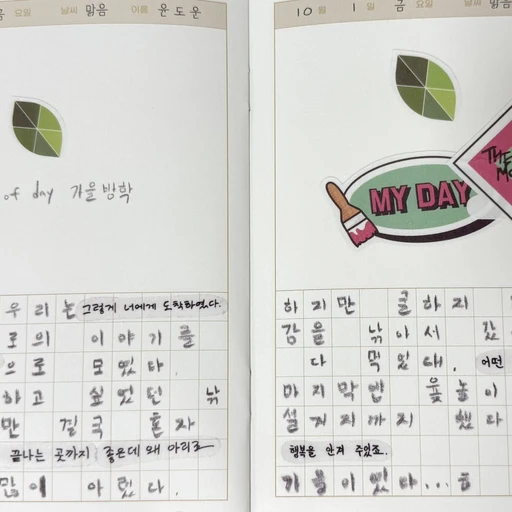 요일 날씨 맑음 이름 윤도운
of day 가을방학
우리는 그렇게 너에게 도착하였다.
로의 이야기를
으로 모였다.
하고 싶었던 낚
만 결국 혼자
끝나는 곳까지 좋은데 왜 아리고
많이 아렸다.
10 월 1 일 금 요일 날씨 맑음
MY DAY
THE
하지만 굴하지
감을 낚아서 갔
다 먹었대. 어떤
마지막엔 윷놀이
설거지까지 했다
행복을 안겨 주었죠.
가을이 었다...